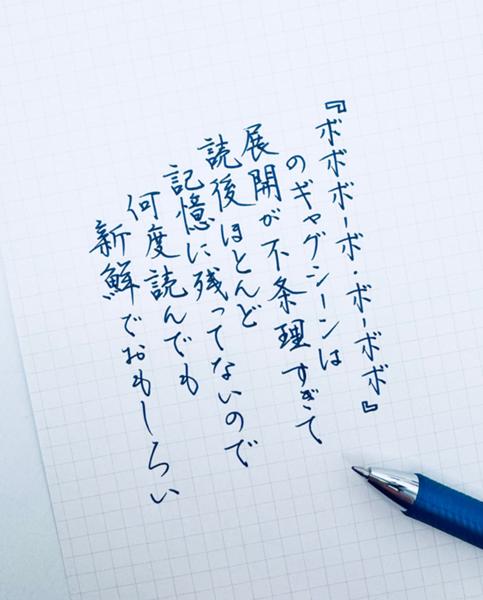 『ボボボーボ・ボーボボ』
のギャグシーンは
展開が不条理すぎて
読後ほとんど
記憶に残ってないので
何度読んでも
新鮮でおもしろい